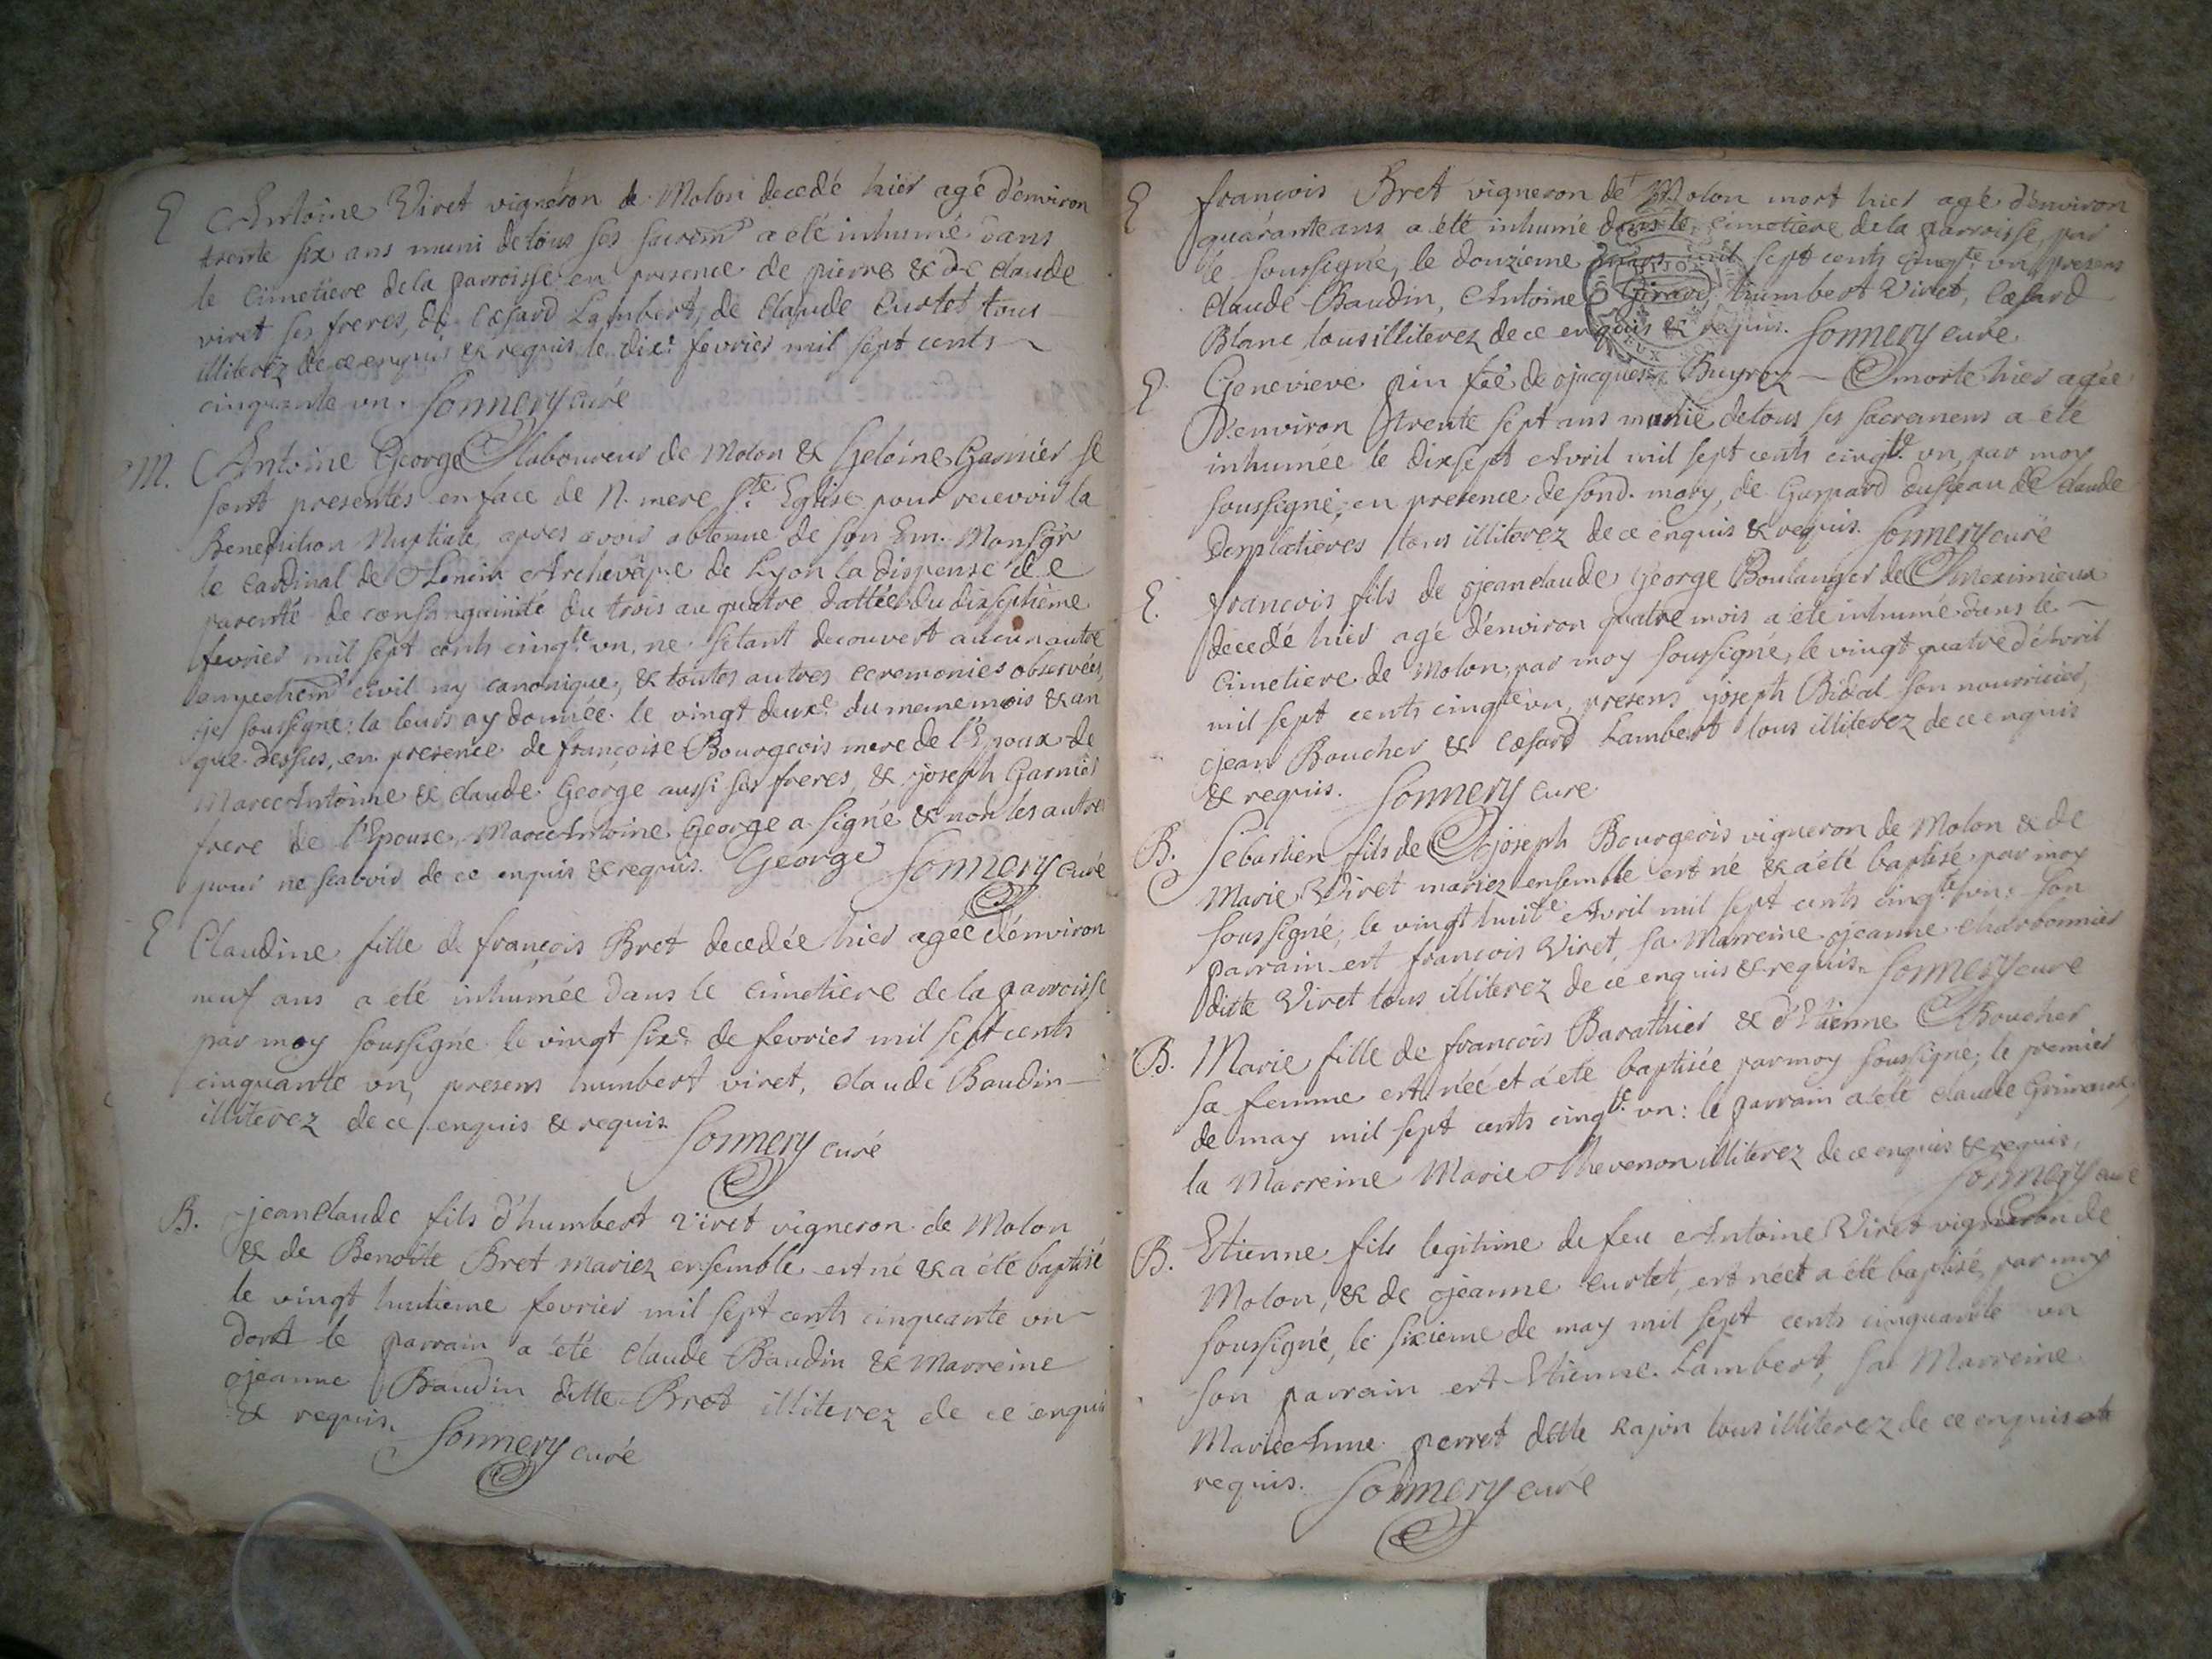 E Antoine Viret vigneron de Molon decedé hier agé d'environ
trente six ans muni de tous ses sacrem.s a été inhumé dans
le cimetiere de la parroisse en presence de pierre & de claude
viret ses freres, de Cæsard Lambert, de Claude Curtet tous
illiterez de ce enquis & requis le dix.e fevrier mil sept cents
cinquante un. Sonnery curé
M. Antoine George laboureur de Molon & Garnier se
sont presentés en face de N. mere S.te Eglise pour recevoir la
Benediction Nuptiale apres avoir obtenue de son Em. Monsgr
le Cardinal de Archevâque de Lyon la dispense de
parenté de consanguinité du trois au quatre dattée du dixseptieme
fevrier mil sept cents cinq.te un, ne setant decouvert aucun autre
empechem.t civil ny canonique, & toutes autres ceremonies observées,
je soussigné la leurs ay donnée le vingt deux.e du meme mois & an
que dessus, en presence de françoise Bourgeois mere de l'Epoux de
Marc Antoine & claude George aussi ses freres, & joseph Garnier
frere de l'Epouse, Marc Antoine George a signé & non les autres
pour ne scavoir de ce enquis & requis. George Sonnery curé
E Claudine fille de françois Bret decedée hier agée d'environ
neuf ans a été inhumée dans le cimetiere de la parroisse
par moy soussigné le vingt six.e de fevrier mil sept cents
cinquante un, presens humbert viret, claude Baudin
illiterez de ce enquis & requis. Sonnery curé
B. jeanclaude fils d'humbert viret vigneron de Molon
& de Benoitte Bret mariez ensemble est né & a été baptisé
le vingt huitieme fevrier mil sept cents cinquante un
dont le parrain a été claude Baudin & Marreine
jeanne Baudin ditte Bret illiterez de ce enquis
& requis. Sonnery curé
E françois Bret vigneron de Molon mort hier agé d'environ
quarante ans a été inhumé dans le cimetiere de la parroisse, par
le soussigné, le douzieme mars mil sept cents cinq.te un, presens
claude Baudin, Antoine Girard, humbert Viret, Cæsard
Blanc tous illiterez de ce enquis & requis. Sonnery curé
E. Genevieve pin de jacques morte hier agée
d'environ trente sept ans munie de tous ses sacremens a été
inhumée le dixsept Avril mil sept cents cinq.te un, par moy
soussigné, en presence de sond. mary, de Guspard de claude
Desplatieres tous illiterez de ce enquis & requis. Sonnery curé
E. françois fils de jeanclaude George Boulanger de Meximieux
decedé hier agé d'environ quatre mois a été inhumé dans le
cimetiere de Molon, par moy soussigné, le vingt quatre d'Avril
mil sept cents cinq.te un, presens joseph Bidal son nourricier,
jean Boucher & Cæsard Lambert tous illiterez de ce enquis
& requis. Sonnery curé
B. Sebastien fils de joseph Bourgeois vigneron de Molon & de
Marie Viret mariez ensemble est né & a été baptisé par moy
soussigné, le vingt huit.e Avril mil sept cents cinq.te un: son
parrain est françois Viret, sa Marreine jeanne charbonnier
ditte Viret tous illiterez de ce enquis & requis. Sonnery curé
B. Marie fille de françois Barathier & d'Etienne Boucher
sa femme est née et a été baptisée par moy soussigné, le premier
de may mil sept cents cinq.te un: le parrain a été claude Grimaud,
la Marreine Marie Thevenon illiterez de ce enquis & requis,
Sonnery curé
B. Etienne fils legitime de feu Antoine Viret vigneron de
Molon, & de jeanne Curtet, est né et a été baptisé, par moy
soussigné, le sixieme de may mil sept cents cinquante un
son parrain est Etienne Lambert, sa Marreine
Marie Anne perret ditte Rajon tous illiterez de ce enquis et
requis. Sonnery curé